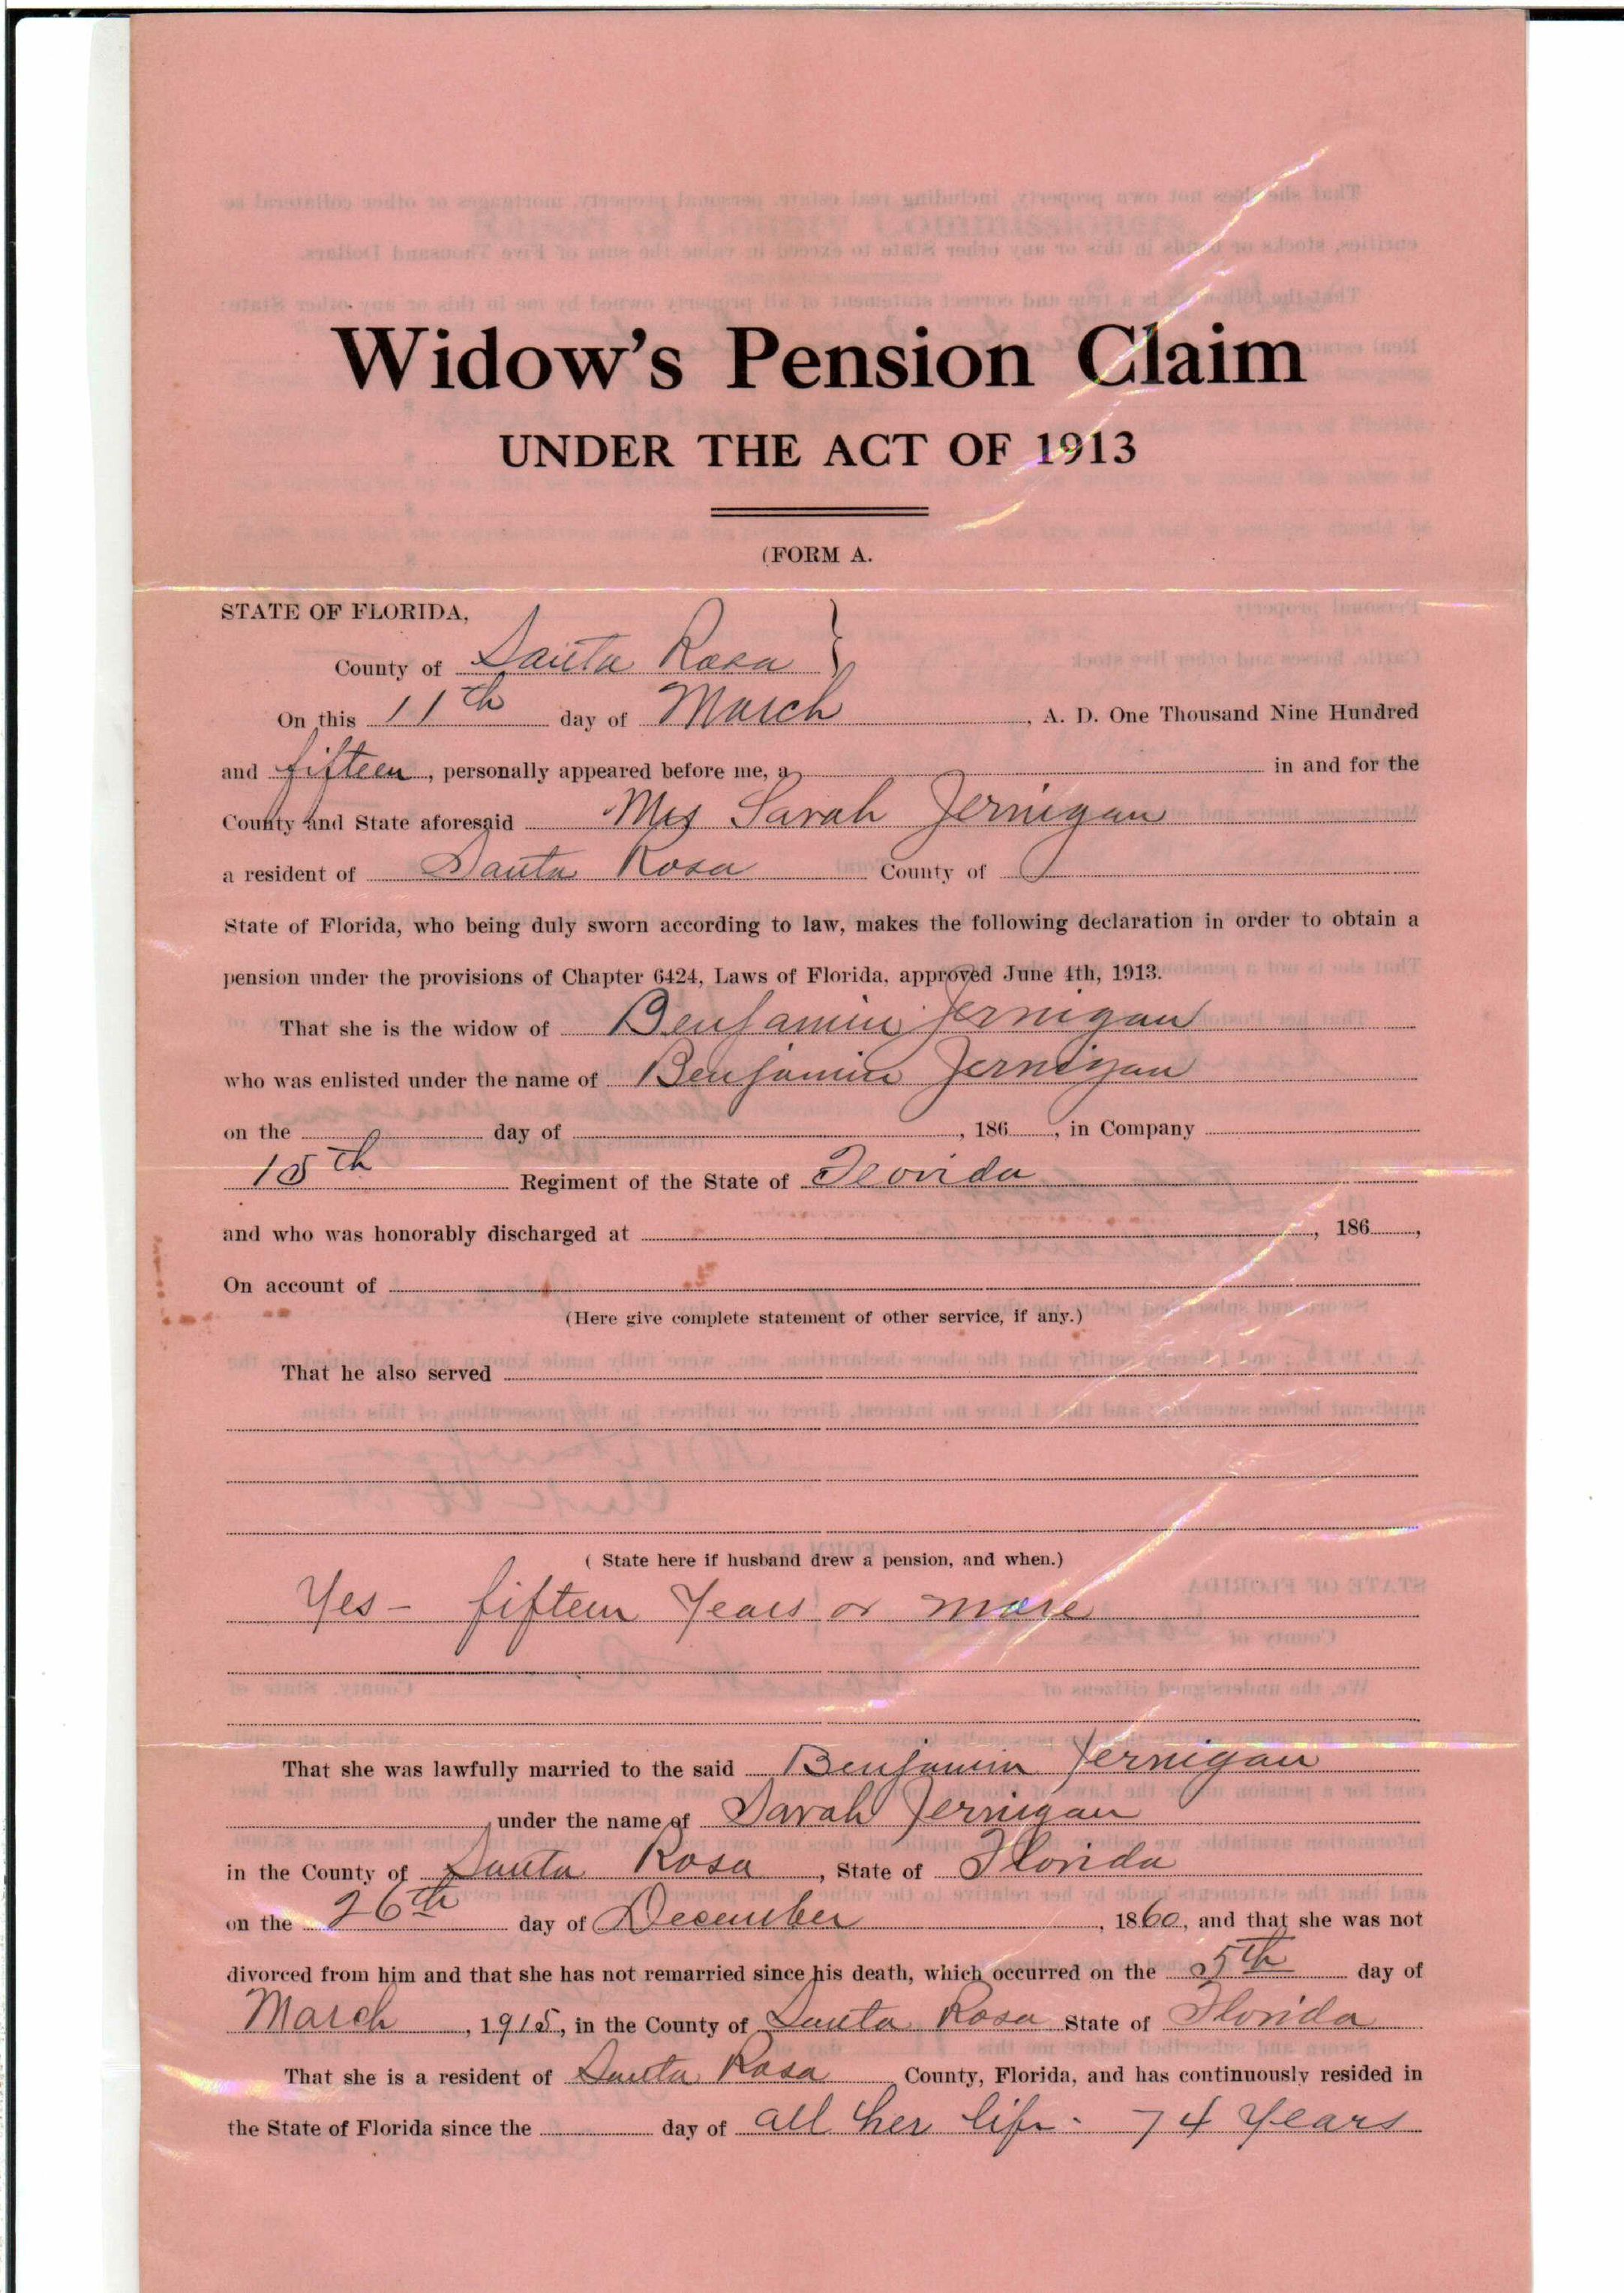 Widow's Pension Claim
UNDER THE ACT OF 1913
(FORM A.
STATE OF FLORIDA,
County of Santa Rosa }
On this 11th day of March, A. D. One Thousand Nine Hundred
and fifteen, personally appeared before me, a in and for the
County and State aforesaid Mrs Sarah Jernigan
a resident of Santa Rosa County of
State of Florida, who being duly sworn according to law, makes the following declaration in order to obtain a
pension under the provisions of Chapter 6424, Laws of Florida, approved June 4th, 1913.
That she is the widow of Benjamin Jernigan
who was enlisted under the name of Benjamin Jernigan
on the day of , 186 , in Company
15th Regiment of the State of Florida
and who was honorably discharged at , 186 ,
On account of
(Here give complete statement of other service, if any.)
That he also served
( State here if husband drew a pension, and when.)
Yes - fifteen Years or more
That she was lawfully married to the said Benjamin Jernigan
under the name of Sarah Jernigan
in the County of Santa Rosa, State of Florida
on the 26th day of December, 1860, and that she was not
divorced from him and that she has not remarried since his death, which occurred on the 5th day of
March, 1915, in the County of Santa Rosa State of Florida
That she is a resident of Santa Rosa County, Florida, and has continuously resided in
the State of Florida since the day of all her life - 74 Years